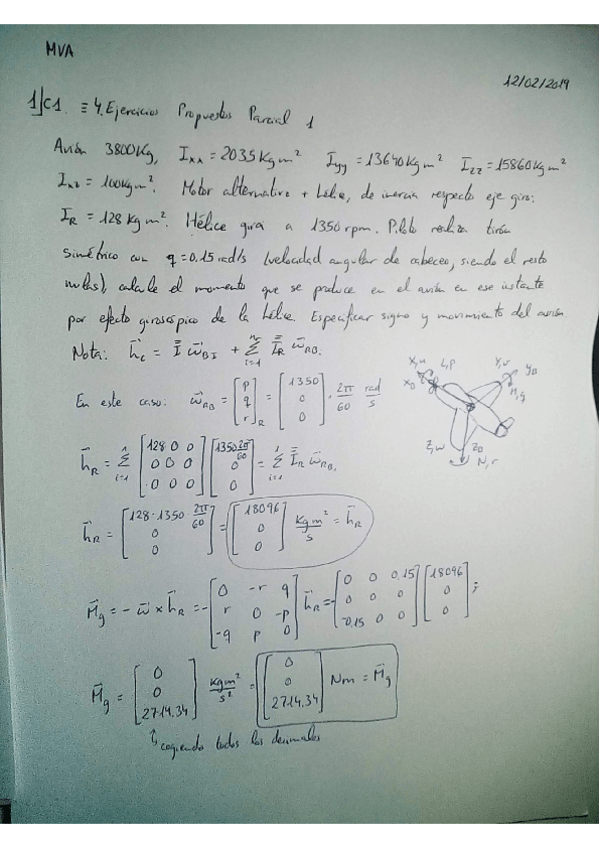 MVA
12/02/2019
1)C1. ≡ 4. Ejercicios Propuestos Parcial 1
Avión 3800Kg, Ixx = 2035 Kg m² Iyy = 13640 Kg m² Izz = 15860 Kg m²
Ixz = 100 Kg m². Motor alternativo + hélice, de inercia respecto eje giro:
IR = 128 Kg m². Hélice gira a 1350 rpm. Piloto realiza tirón
simétrico con q = 0.15 rad/s (velocidad angular de cabeceo, siendo el resto
nulas), calcule el momento que se produce en el avión en ese instante
por efecto giroscópico de la hélice. Especificar signo y movimiento del avión
Nota: h⃗c = I ω⃗BI + Σ IR ω⃗RB.
En este caso: ω⃗RB = [p q r]R = [1350 0 0] · 2π/60 rad/s
X,u L,p Y,v
XB YB
M,q
Z,w ZB
N,r
h⃗R = Σ [128 0 0; 0 0 0; 0 0 0] [1350 2π/60; 0; 0] = Σ IR ω⃗RB.
h⃗R = [128·1350 2π/60; 0; 0] = [18096; 0; 0] Kg m²/s = h⃗R
M⃗g = - ω⃗ × h⃗R = - [0 -r q; r 0 -p; -q p 0] h⃗R = - [0 0 0,15; 0 0 0; -0.15 0 0] [18096; 0; 0] ;
M⃗g = [0; 0; 2714.34] Kg m²/s² = [0; 0; 2714.34] Nm = M⃗g
↳ cogiendo todos los decimales